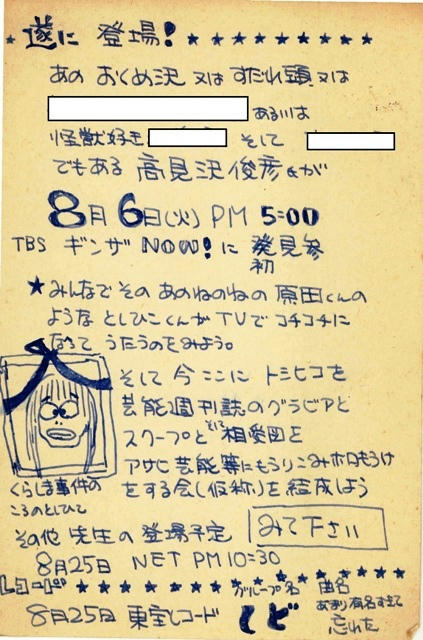 遂に 登場! ★★★★★★★★★
あの おくめ沢 又は すだれ頭 又は
あるいは
怪獣好き そして
でもある 高見沢俊彦が
8月6日(火) PM 5:00
TBS ギンザNOW!に 初発見参
★みんなでその あのねのねの 原田くんの
ような としひこくんがTVで コチコチに
なって うたうのをみよう。
そして 今ここに トシヒコを
芸能週刊誌のグラビアと
スクープと そして 相愛図を
アサヒ芸能等にもうりこみ ボロもうけ
をする会(仮称)を 結成しよう
くらしま事件の
ころのとしひこ
その他 先生の 登場予定 みて下さい
8月25日 NET PM10:30
レコード ★★★★★★★ グループ名 曲名
8月25日 東宝レコード あまり有名すぎて
忘れた